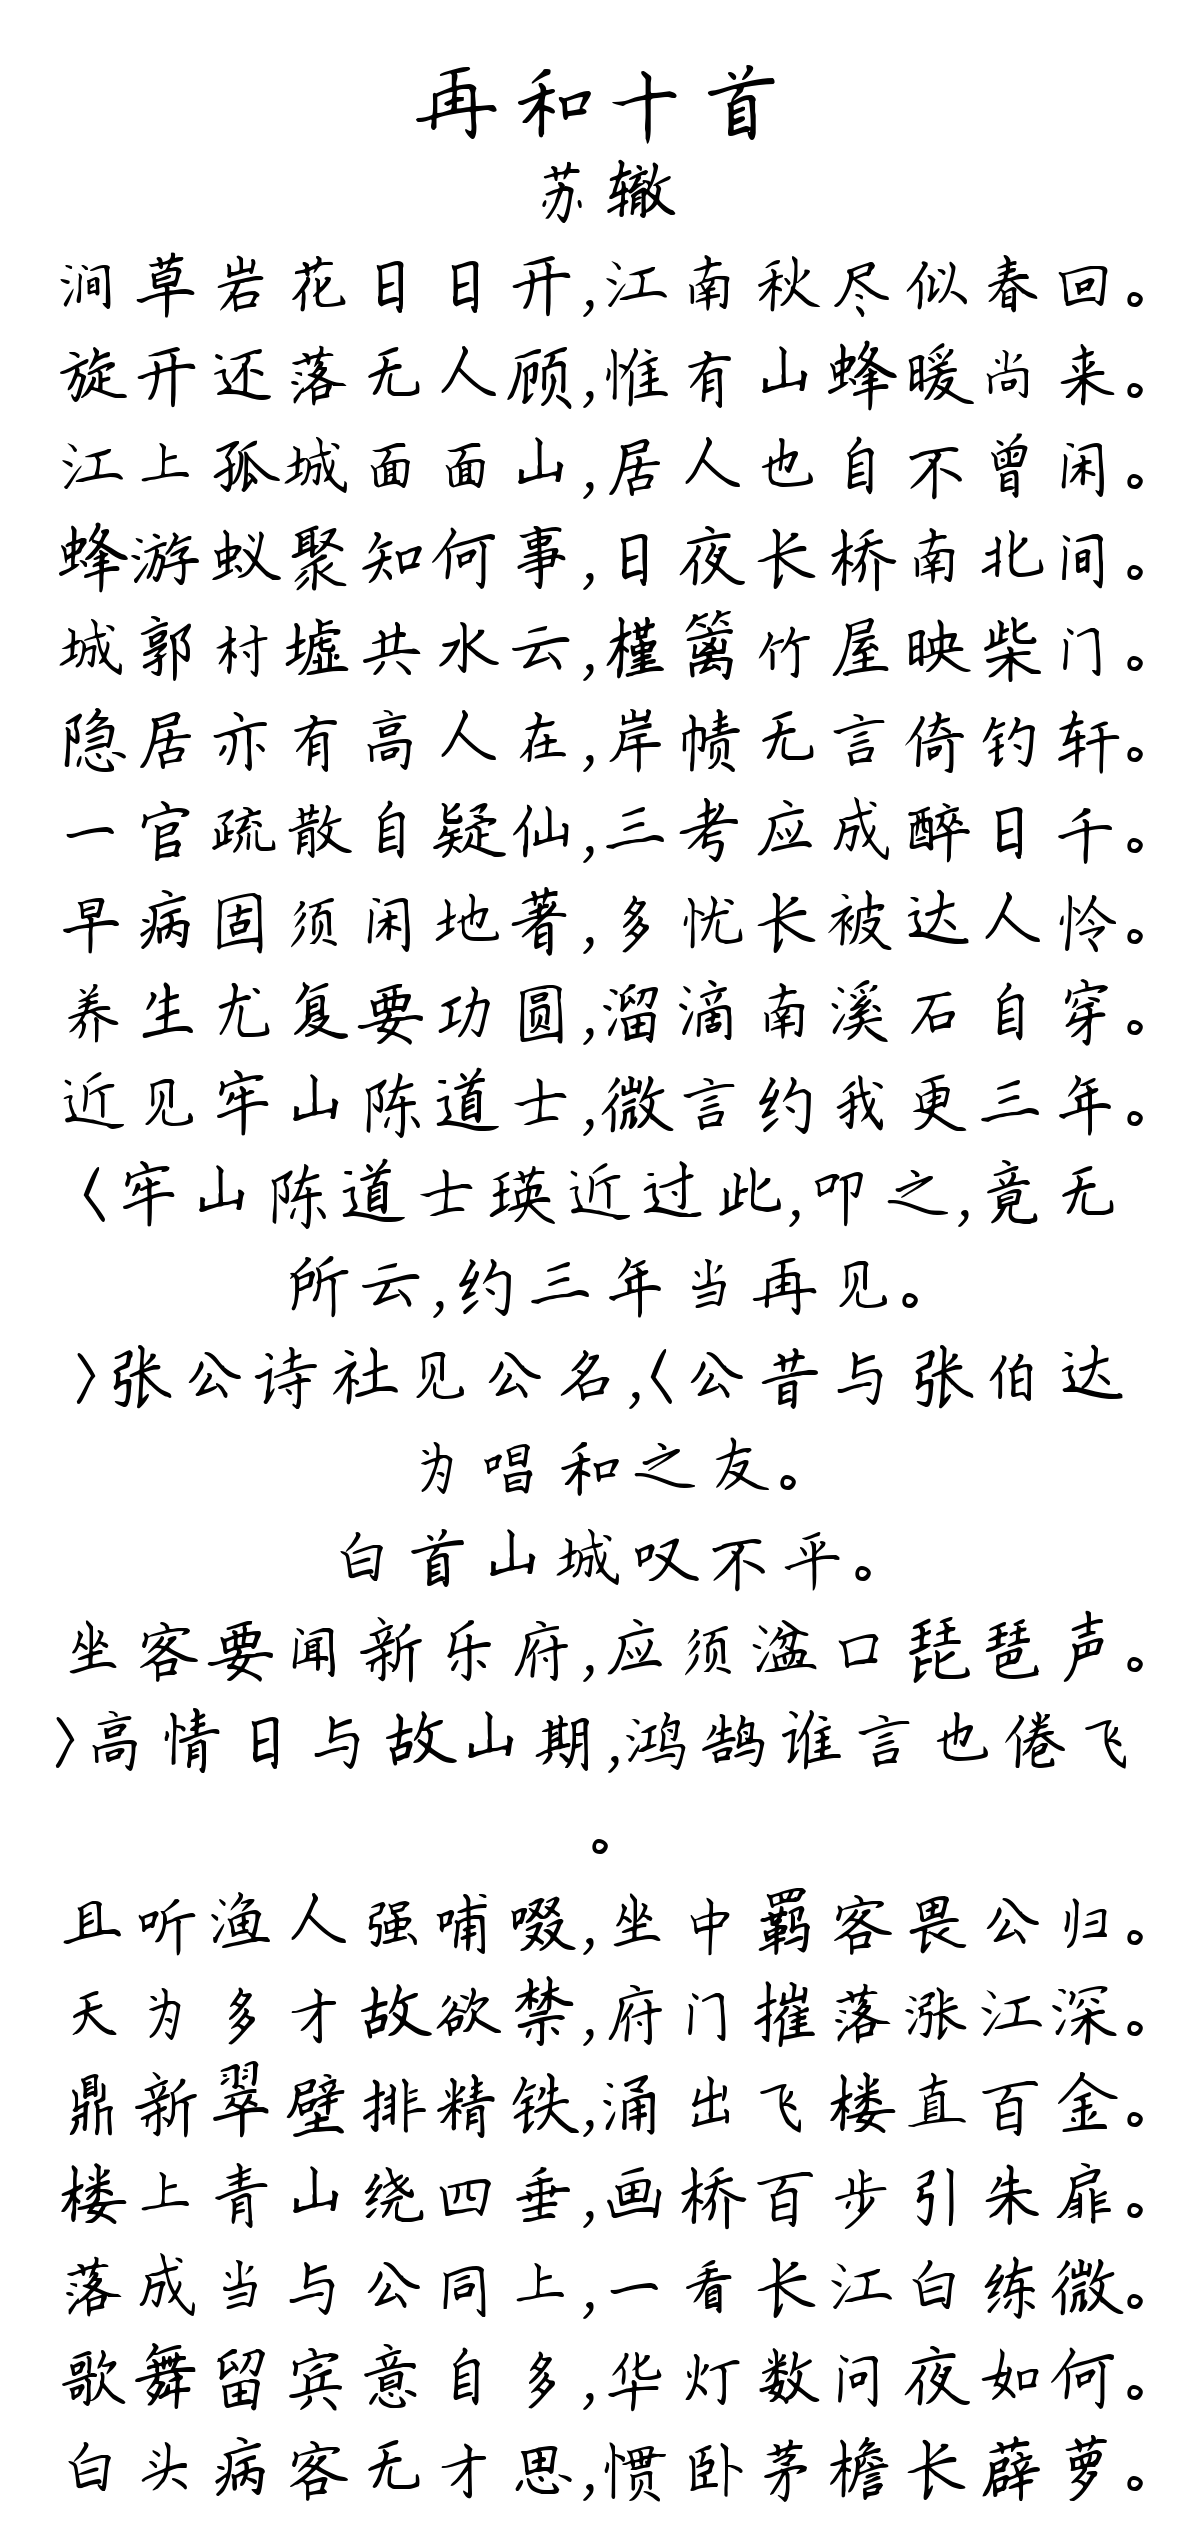 再和十首
苏辙
涧草岩花日日开,江南秋尽似春回。
旋开还落无人顾,惟有山蜂暖尚来。
江上孤城面面山,居人也自不曾闲。
蜂游蚁聚知何事,日夜长桥南北间。
城郭村墟共水云,槿篱竹屋映柴门。
隐居亦有高人在,岸帻无言倚钓轩。
一官疏散自疑仙,三考应成醉日千。
早病固须闲地著,多忧长被达人怜。
养生尤复要功圆,溜滴南溪石自穿。
近见牢山陈道士,微言约我更三年。
〈牢山陈道士瑛近过此,叩之,竟无
所云,约三年当再见。
〉张公诗社见公名,〈公昔与张伯达
为唱和之友。
白首山城叹不平。
坐客要闻新乐府,应须湓口琵琶声。
〉高情日与故山期,鸿鹄谁言也倦飞
。
且听渔人强哺啜,坐中羁客畏公归。
天为多才故欲禁,府门摧落涨江深。
鼎新翠壁排精铁,涌出飞楼直百金。
楼上青山绕四垂,画桥百步引朱扉。
落成当与公同上,一看长江白练微。
歌舞留宾意自多,华灯数问夜如何。
白头病客无才思,惯卧茅檐长薜萝。